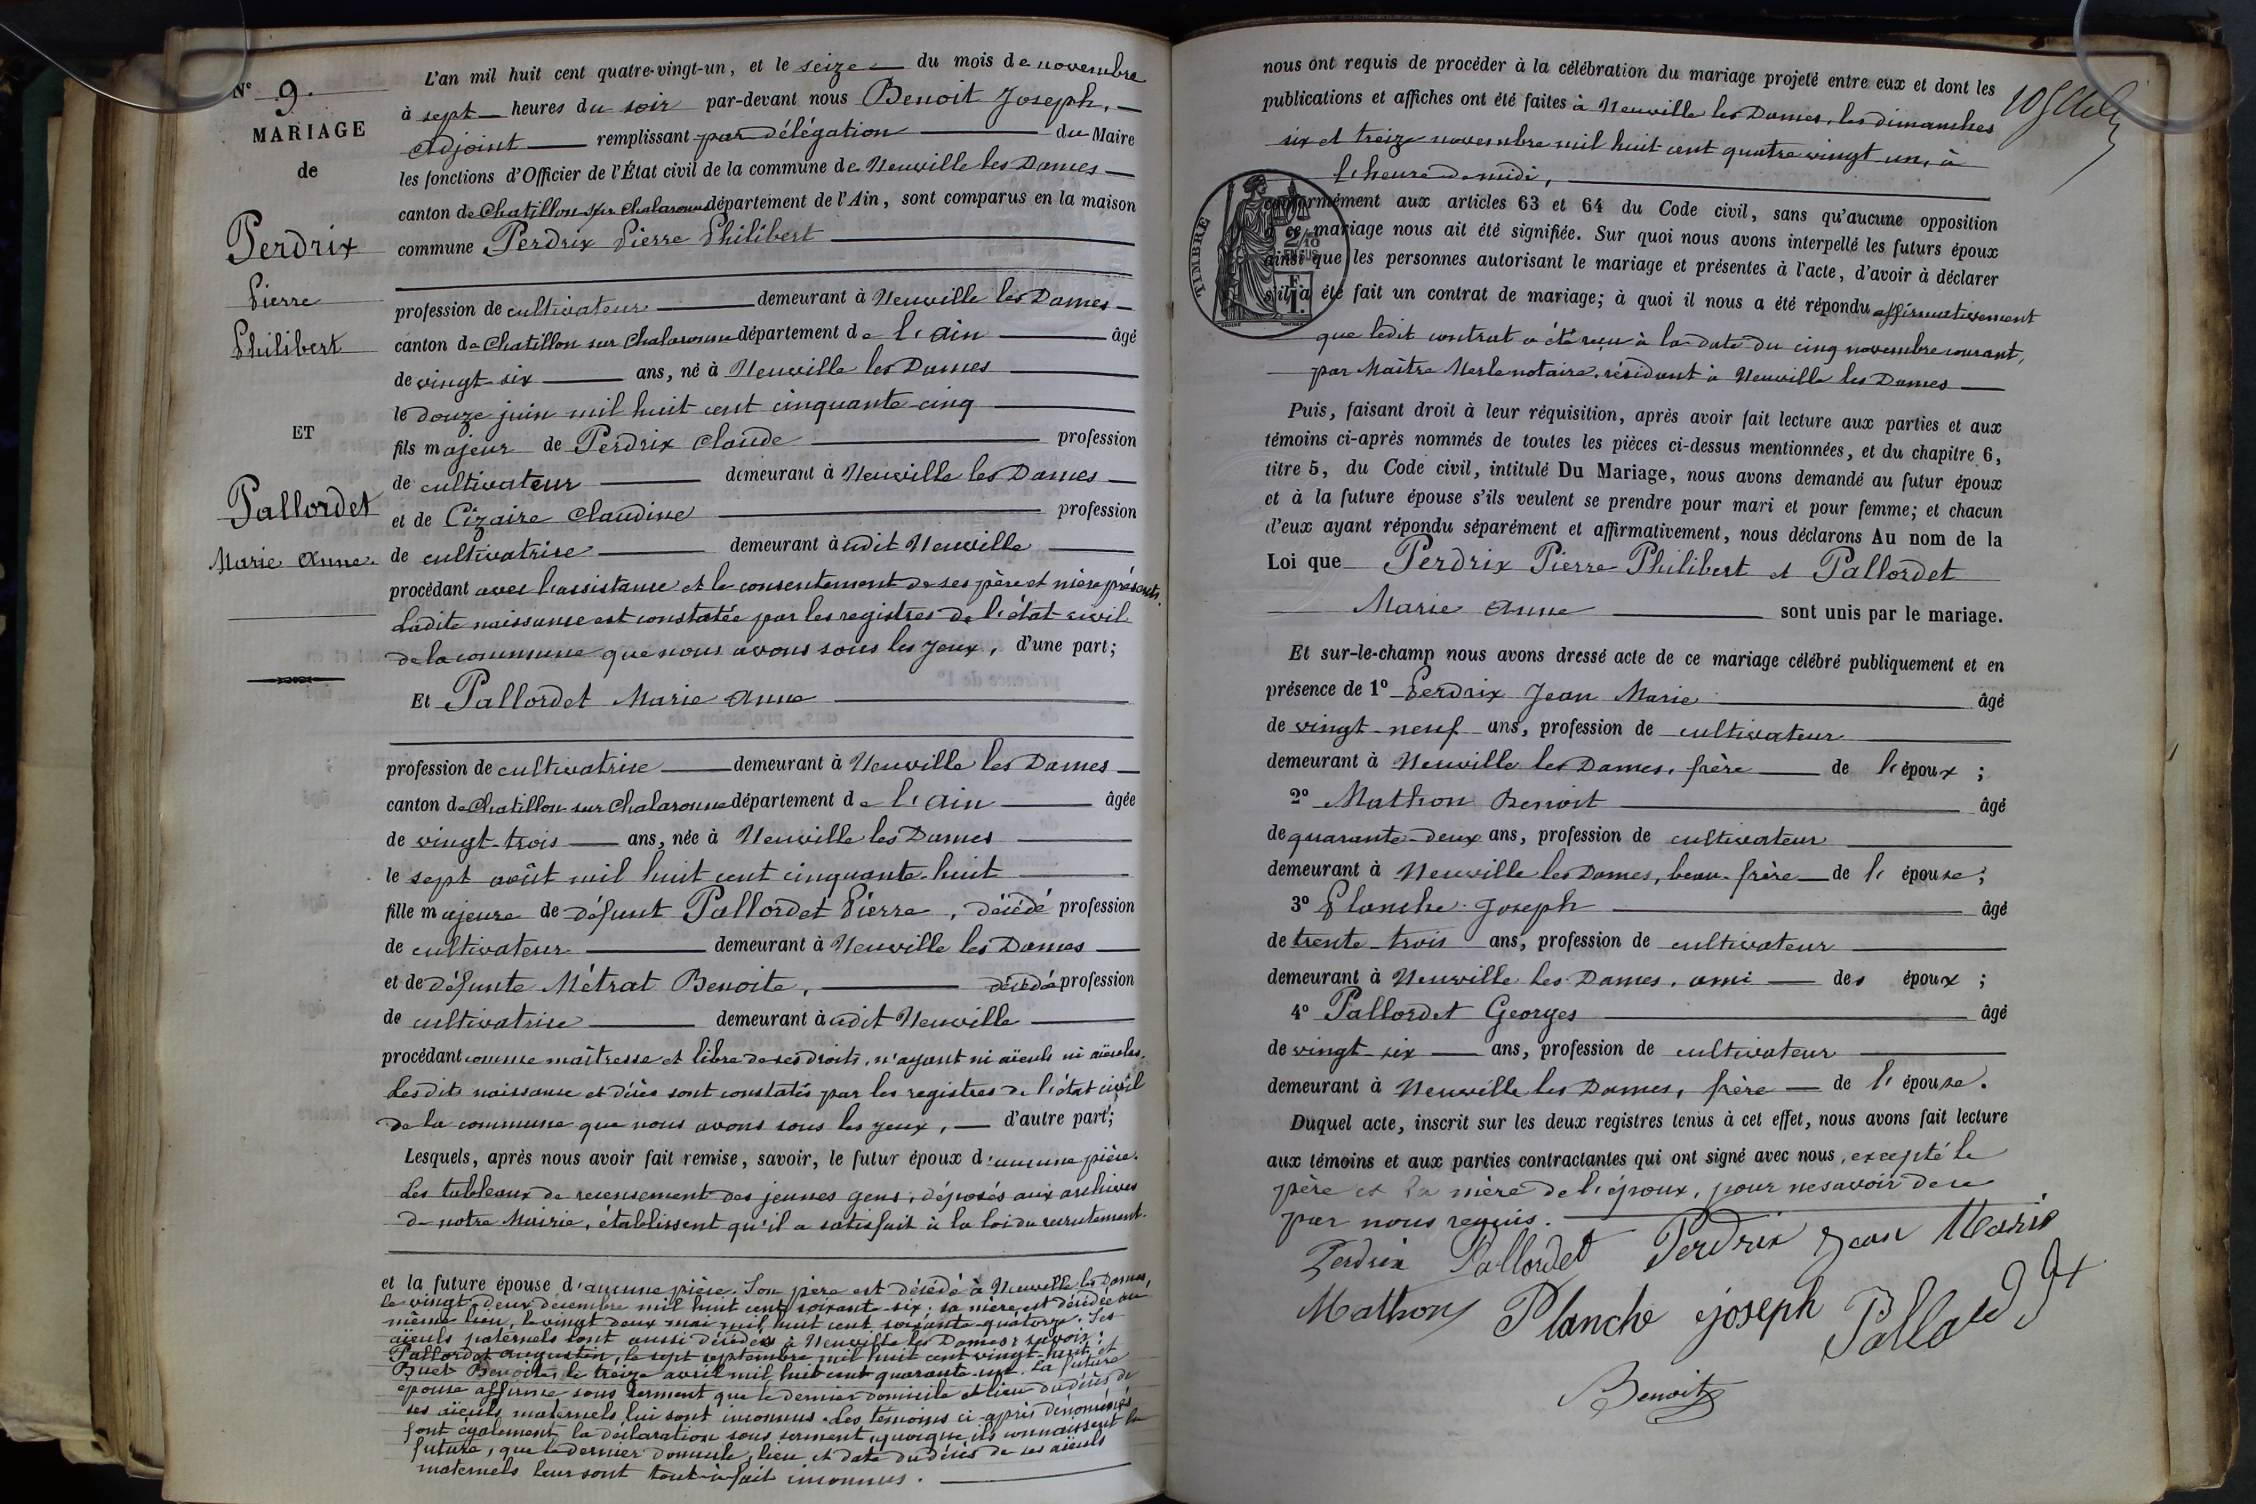 N° 9.
MARIAGE
de
Perdrix
Pierre
Philibert
ET
Pallordet
Marie Anne.
L'an mil huit cent quatre-vingt-un, et le seize du mois de novembre
à sept heures du soir par-devant nous Benoit Joseph,
Adjoint remplissant par délégation du Maire
les fonctions d'Officier de l'État civil de la commune de Neuville les Dames
canton de Chatillon sur Chalaronne département de l'Ain, sont comparus en la maison
commune Perdrix Pierre Philibert
profession de cultivateur demeurant à Neuville les Dames
canton de Chatillon sur Chalaronne département de l'Ain âgé
de vingt-six ans, né à Neuville les Dames
le douze juin mil huit cent cinquante-cinq
fils majeur de Perdrix Claude profession
de cultivateur demeurant à Neuville les Dames
et de Cizaire Claudine profession
de cultivatrice demeurant à udit Neuville
procédant avec l'assistance et le consentement de ses père et mère présents.
Ladite naissance est constatée par les registres de l'état-civil
de la commune que nous avons sous les yeux, d'une part;
Et Pallordet Marie Anne
profession de cultivatrice demeurant à Neuville les Dames
canton de Chatillon sur Chalaronne département de l'Ain âgée
de vingt-trois ans, née à Neuville les Dames
le sept août mil huit cent cinquante-huit
fille majeure de défunt Pallordet Pierre, décédé profession
de cultivateur demeurant à Neuville les Dames
et de défunte Métrat Benoite, décédé profession
de cultivatrice demeurant à udit Neuville
procédant comme maîtresse et libre de ses droits, n'ayant ni aïeuls ni aïeules.
Lesdits naissance et décès sont constatés par les registres de l'état civil
de la commune que nous avons sous les yeux, d'autre part;
Lesquels, après nous avoir fait remise, savoir, le futur époux d'aucune pièce.
Les tableaux de recensement des jeunes gens, déposés aux archives
de notre Mairie, établissent qu'il a satisfait à la loi du recrutement.
et la future épouse d'aucune pièce. Son père est décédé à Neuville les Dames,
le vingt-deux décembre mil huit cent soixante-six; sa mère est décédée au
même lieu, le vingt deux mai mil huit cent soixante-quatorze. Ses
aïeuls paternels sont aussi décédés à Neuville les Dames; savoir:
Pallordet Augustin, le sept septembre mil huit cent vingt-huit; et
Buet Benoite, le treize avril mil huit cent quarante-un. La future
épouse affirme sous serment que le dernier domicile et lieu du décès de
ses aïeuls maternels lui sont inconnus. Les témoins ci-après dénommés
font également la déclaration sous serment, quoique ils connaissent la
future, que le dernier domicile, lieu et date du décès de ses aïeuls
maternels leur sont tout-à-fait inconnus.
nous ont requis de procéder à la célébration du mariage projeté entre eux et dont les
publications et affiches ont été faites à Neuville les Dames, les dimanches
six et treize novembre mil huit cent quatre vingt un, à
l'heure de midi,
conformément aux articles 63 et 64 du Code civil, sans qu'aucune opposition
à ce mariage nous ait été signifiée. Sur quoi nous avons interpellé les futurs époux
ainsi que les personnes autorisant le mariage et présentes à l'acte, d'avoir à déclarer
s'il a été fait un contrat de mariage; à quoi il nous a été répondu affirmativement
TIMBRE
2/10
que ledit contrat a été reçu à la date du cinq novembre courant,
par Maître Merle notaire, résidant à Neuville les Dames
Puis, faisant droit à leur réquisition, après avoir fait lecture aux parties et aux
témoins ci-après nommés de toutes les pièces ci-dessus mentionnées, et du chapitre 6,
titre 5, du Code civil, intitulé Du Mariage, nous avons demandé au futur époux
et à la future épouse s'ils veulent se prendre pour mari et pour femme; et chacun
d'eux ayant répondu séparément et affirmativement, nous déclarons Au nom de la
Loi que Perdrix Pierre Philibert et Pallordet
Marie Anne sont unis par le mariage.
Et sur-le-champ nous avons dressé acte de ce mariage célébré publiquement et en
présence de 1° Perdrix Jean Marie âgé
de vingt-neuf ans, profession de cultivateur
demeurant à Neuville les Dames, frère de l'époux;
2° Mathon Benoit âgé
de quarante-deux ans, profession de cultivateur
demeurant à Neuville les Dames, beau-frère de l'épouse;
3° Planche Joseph âgé
de trente-trois ans, profession de cultivateur
demeurant à Neuville les Dames, ami des époux;
4° Pallordet Georges âgé
de vingt-six ans, profession de cultivateur
demeurant à Neuville les Dames, frère de l'épouse.
Duquel acte, inscrit sur les deux registres tenus à cet effet, nous avons fait lecture
aux témoins et aux parties contractantes qui ont signé avec nous, excepté le
père et la mère de l'époux, pour ne savoir de ce
par nous requis.
Perdrix Pallordet Perdrix Jean Marie
Mathon Planche joseph
Benoit